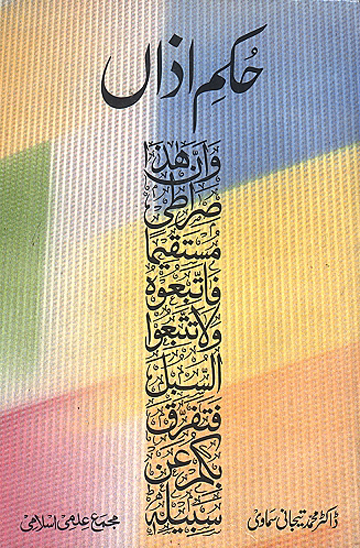 حُکمِ اذاں
وَاَنَّ هٰذَا
صِرَاطِی
مُستَقِیمًا
فَاتَّبِعُوهُ
وَلَا تَتَّبِعُوا
السُّبُلَ
فَتَفَرَّقَ
بِکُم عَن
سَبِیلِهِ
ڈاکٹر محمد تیجانی سماوی
مجمع علمی اسلامی